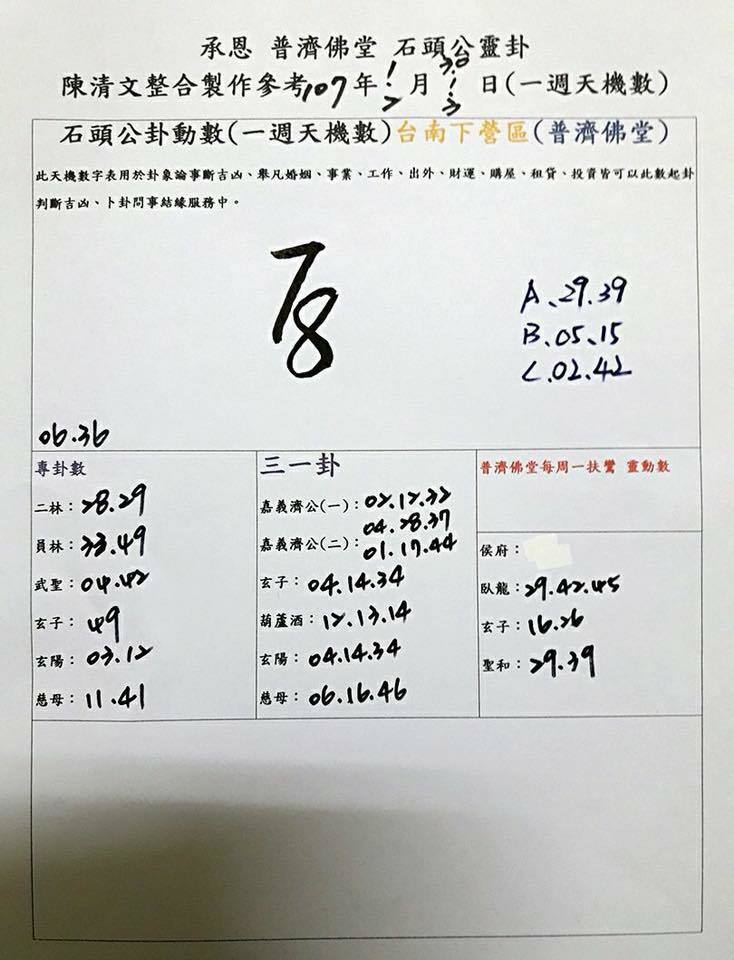 承恩 普濟佛堂 石頭公靈卦
陳清文整合製作參考107年1/2月30/3日(一週天機數)
石頭公卦動數(一週天機數)台南下營區(普濟佛堂)
此天機數字表用於卦象論事斷吉凶、舉凡婚姻、事業、工作、出外、財運、購屋、租貸、投資皆可以此數起卦
判斷吉凶、卜卦問事結緣服務中。
A、29.39
B、05、15
C、02.42
06.36
專卦數
二林：28.29
員林：33.49
武聖：04.42
玄子：49
玄陽：03.12
慈母：11.41
三一卦
嘉義濟公(一)：02.12.32
04.28.37
嘉義濟公(二)：01.17.44
玄子：04.14.34
葫蘆酒：12.13.14
玄陽：04.14.34
慈母：06.16.46
普濟佛堂每周一扶鸞 靈動數
侯府：
臥龍：29.42.45
玄子：16.26
聖和：29.39